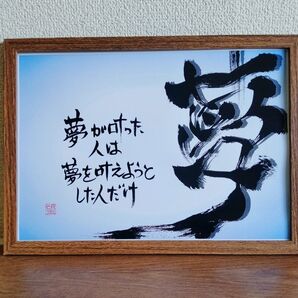 夢
夢が叶った
人は
夢を叶えようと
した人だけ